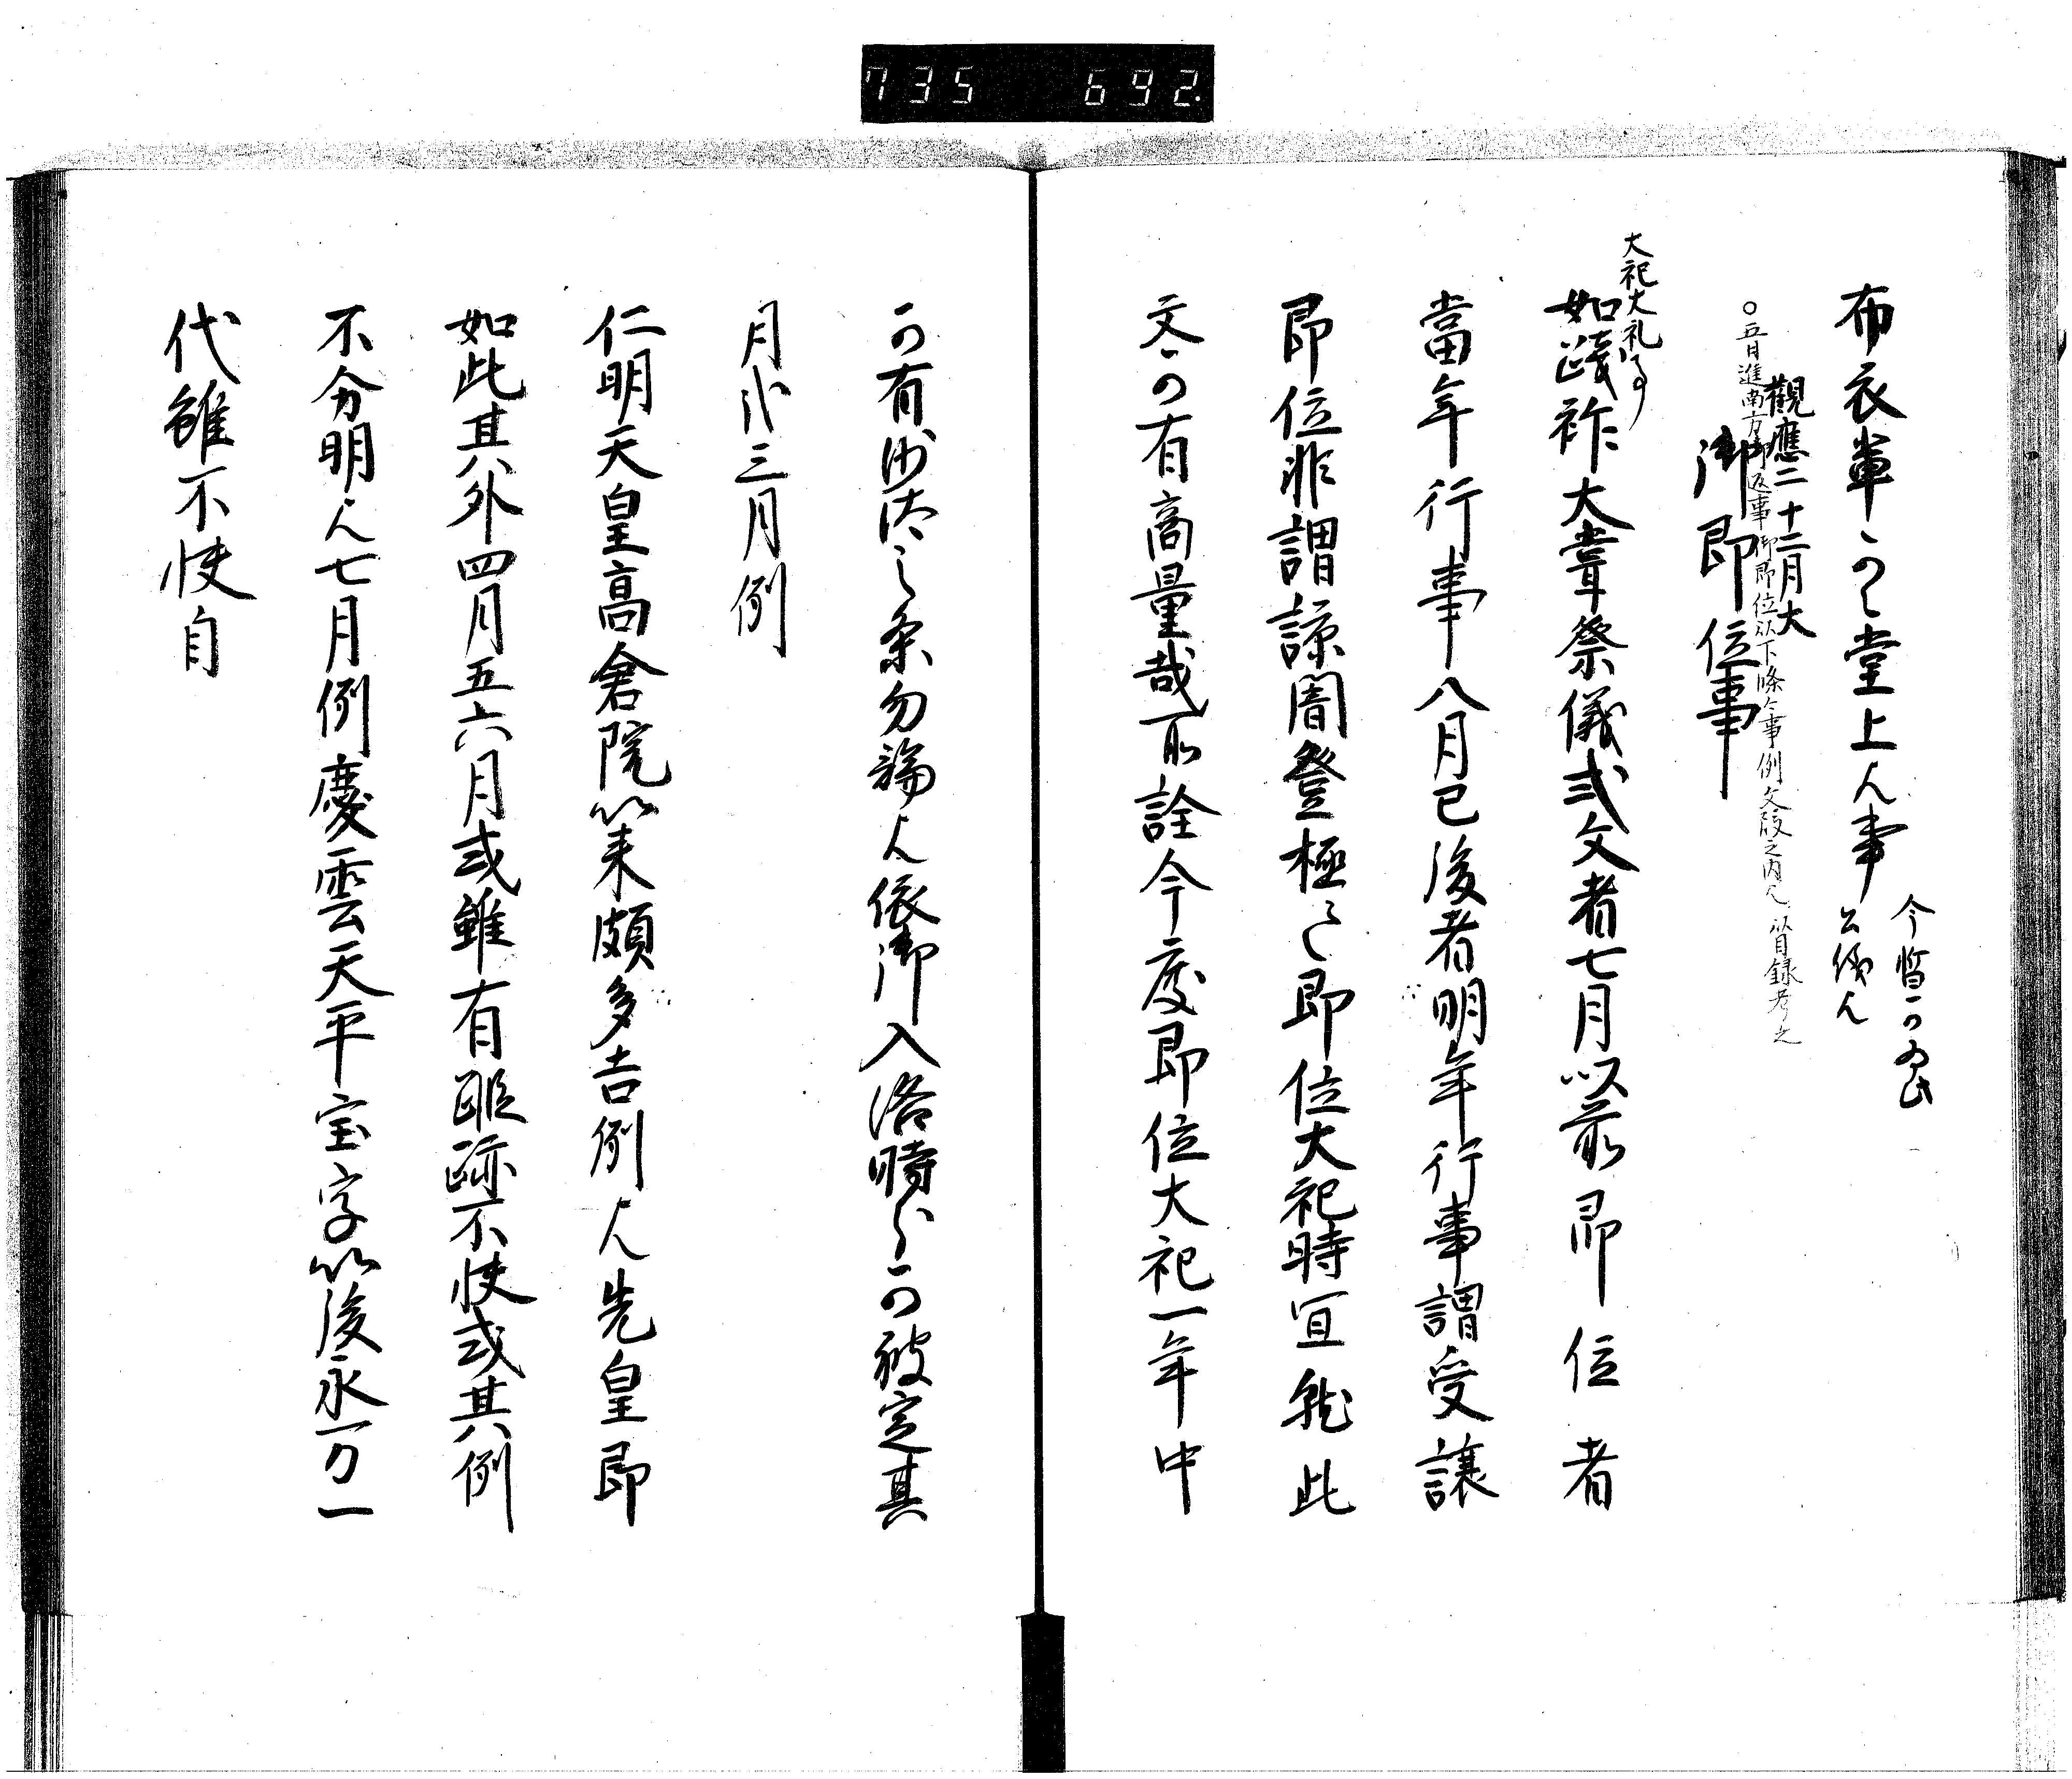 735 692
布衣輩可堂上人事
今暫可為此
公儀也
觀應二十二月大
○五日進南方御返事御即位以下條々事例文段之内也以目録考之
御即位事
大祀大礼事
如踐祚大甞祭儀式文者七月以前即位者
當年行事八月已後者明年行事謂受讓
即位非謂諒闇登極云々即位大祀時宜就此
文可有商量哉所詮今度即位大祀一年中
可有沙汰之条勿論也依御入洛時分可被定其
月々三月例
仁明天皇高倉院以来頗多吉例也先皇即
如此其外四月五六月或雖有蹤跡不快或其例
不分明也七月例慶雲天平宝字以後永万一
代雖不快自